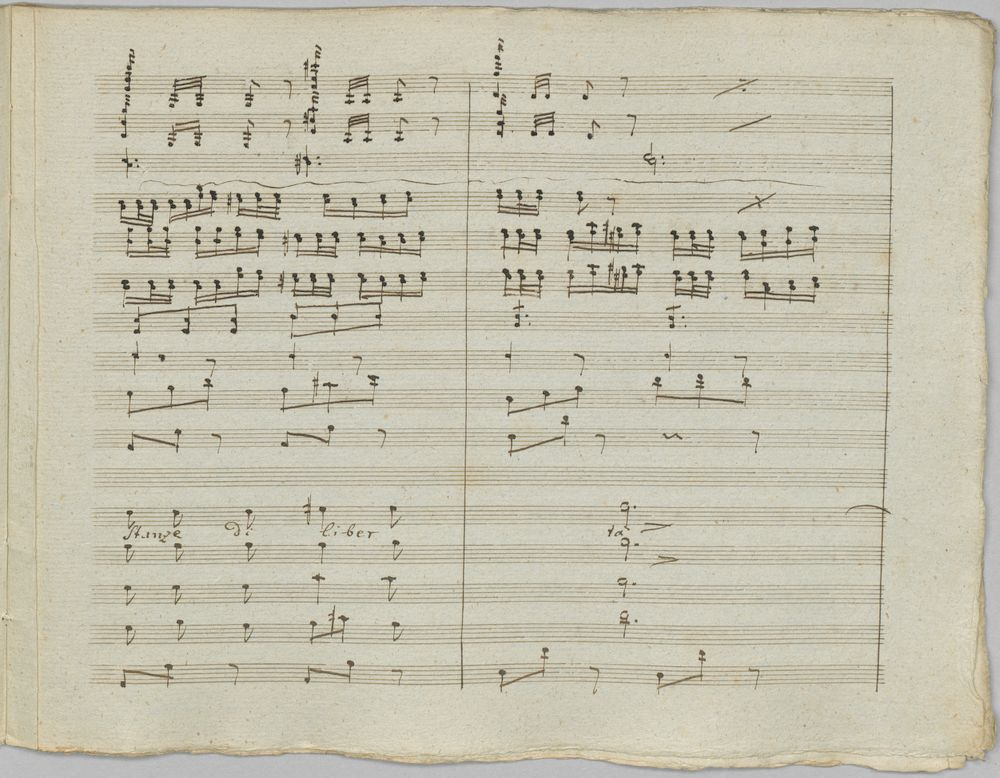 Stanze di liber tà